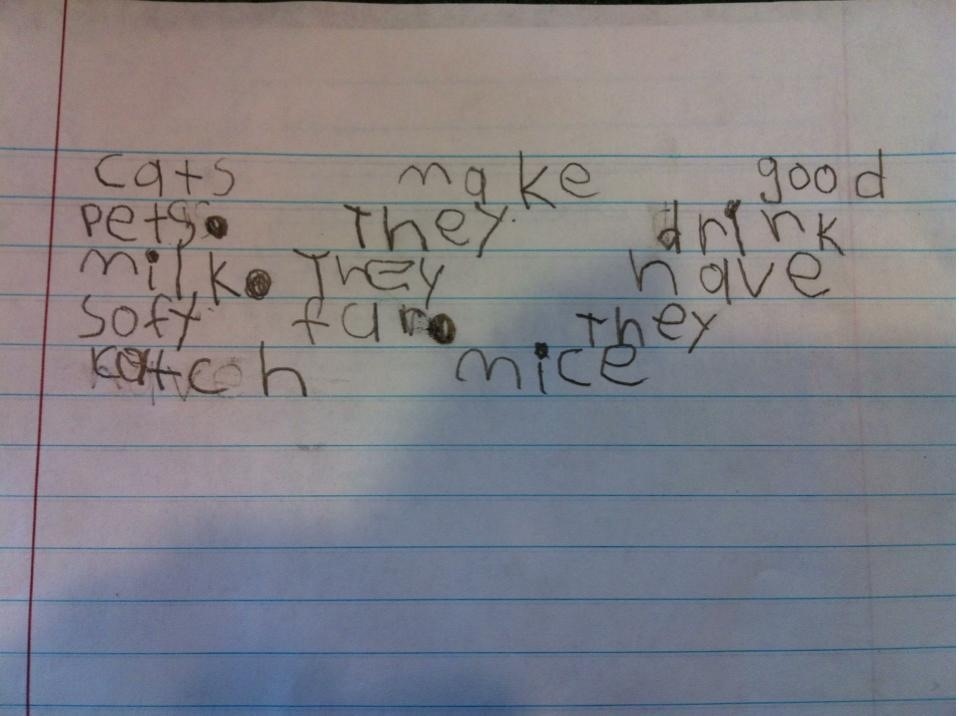 cats make good
pets. They drink
milk. They have
sofy fur. They
catch mice